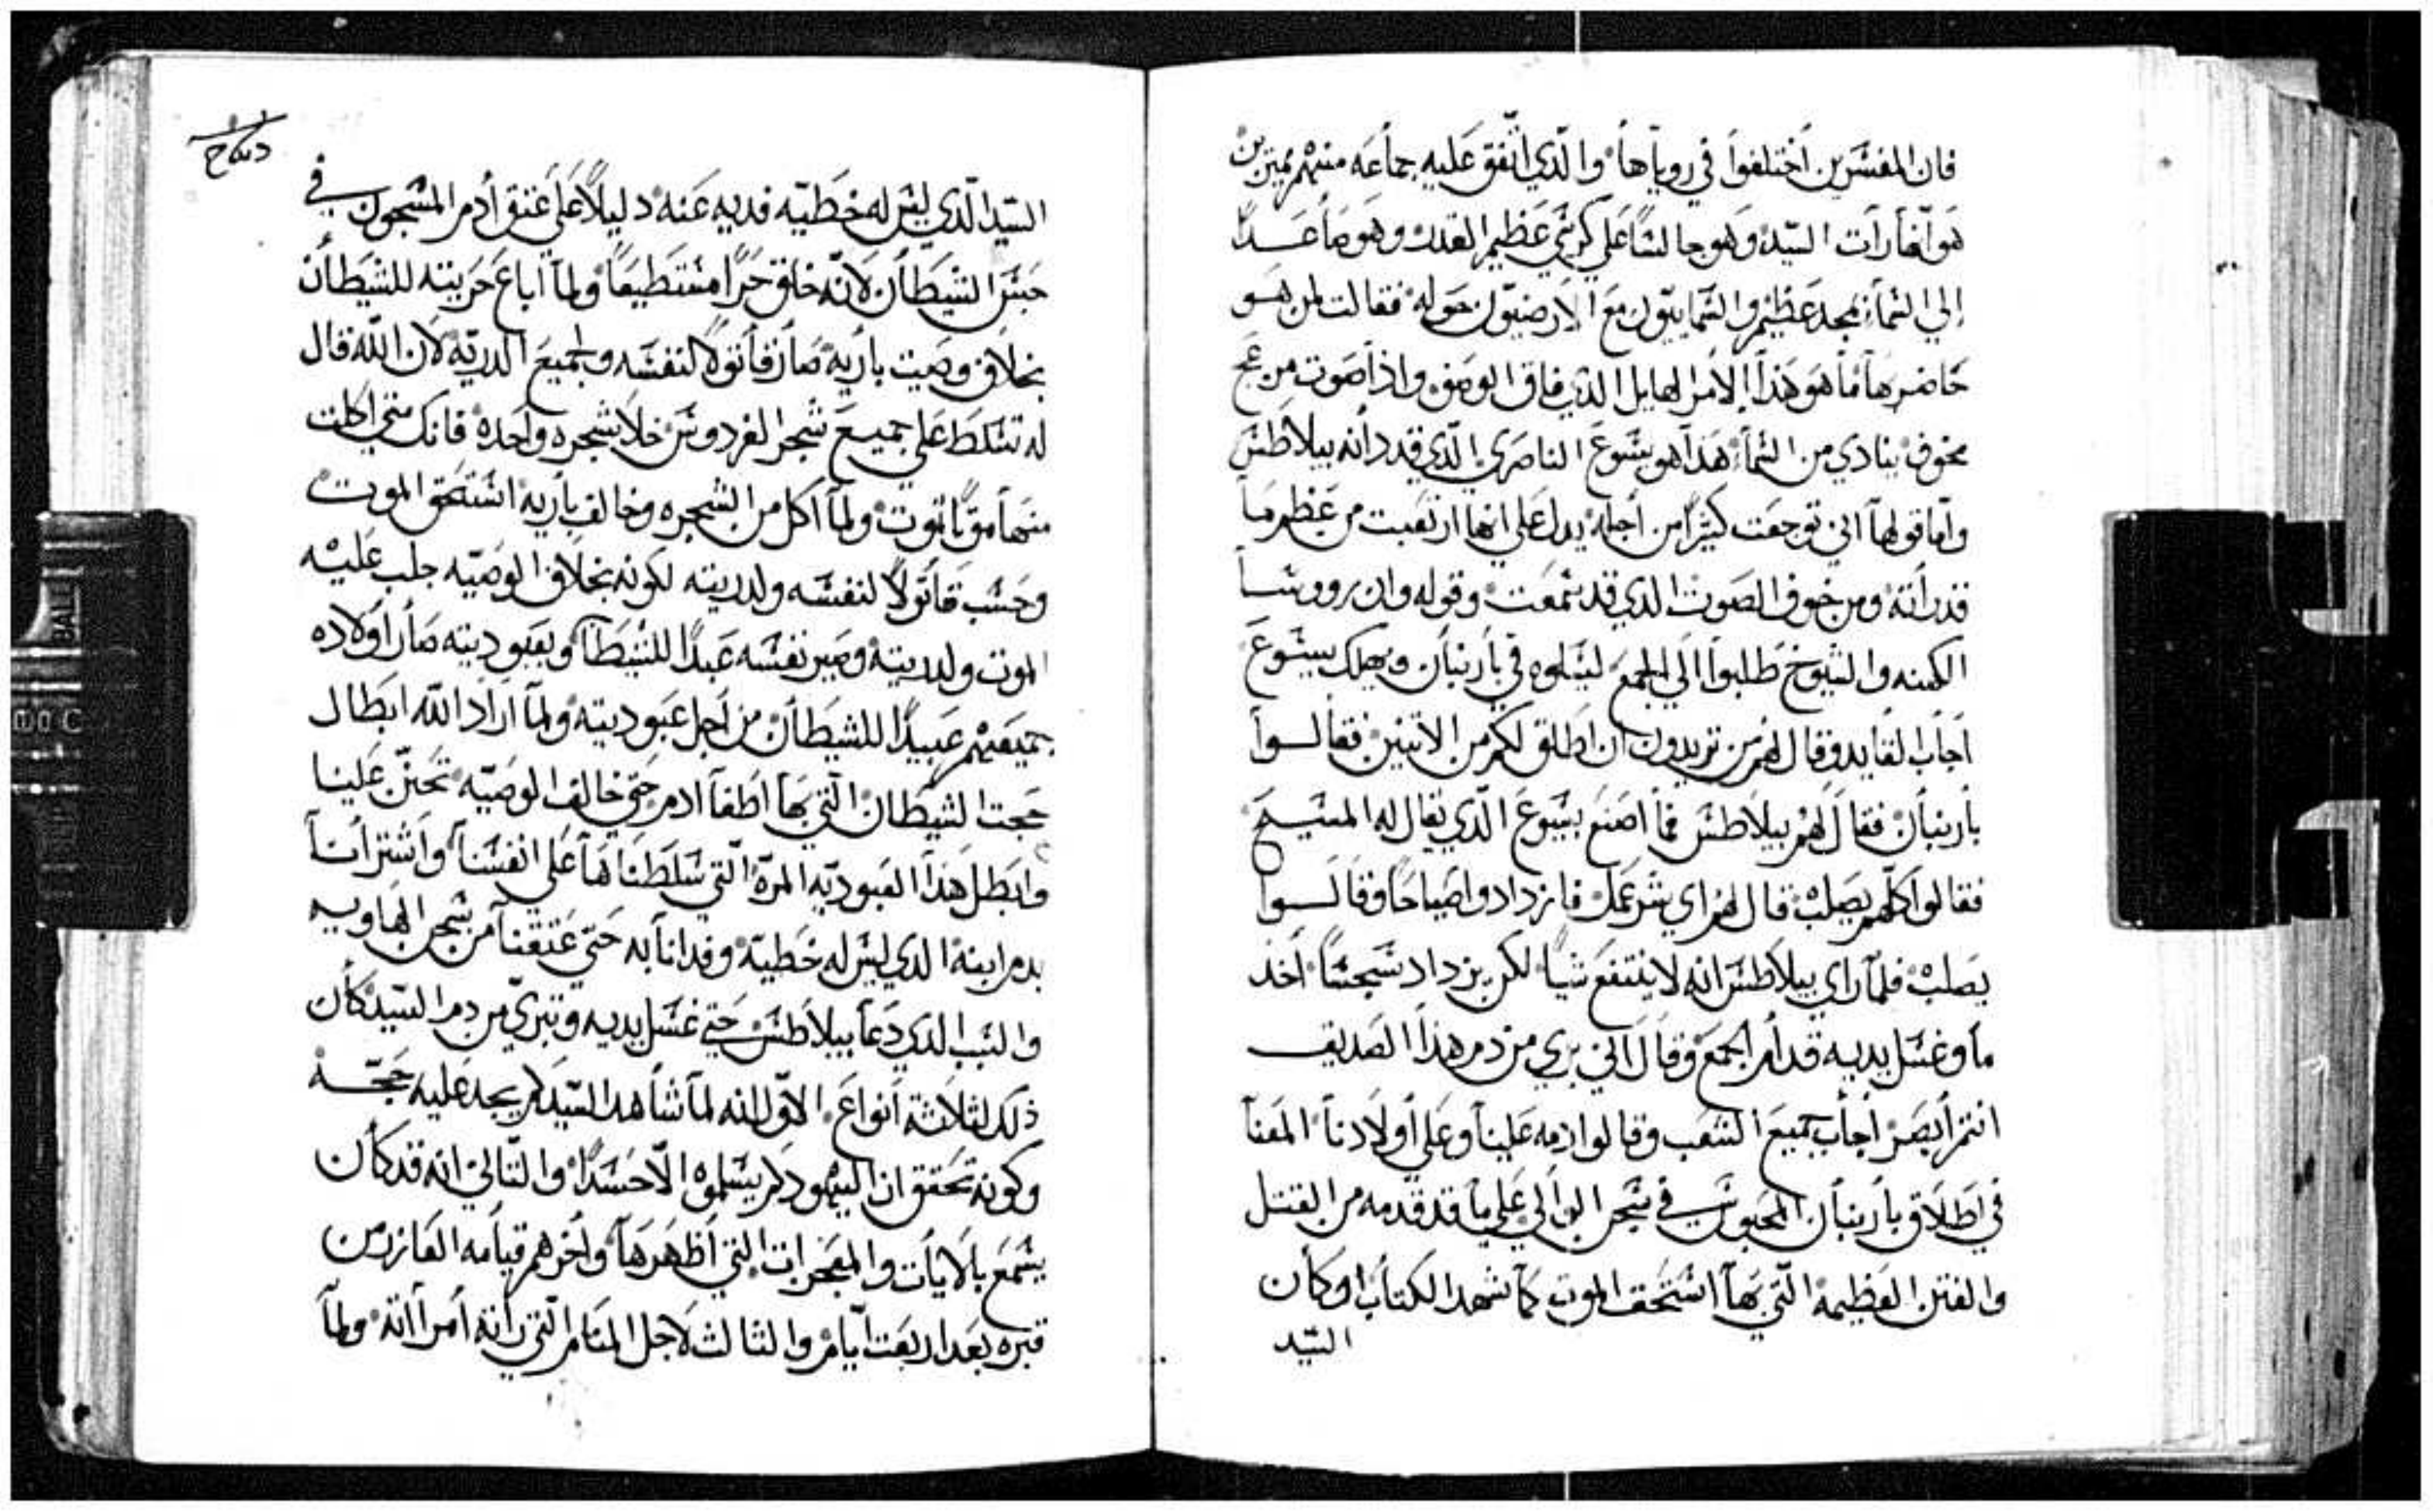 فان المفسرين اختلفوا في روياها والذي اتفق عليه جماعه منهم
هو انها رات السيد وهو جالسًا علي كرسي عظيم القدر وهو صاعدًا
إلي السماء بمجد عظيم والسماييون مع الارضيون حوله فقالت لمن هو
حاضرها ما هو هذا الامر الهايل الذي فاق الوصف واذا صوت من عج
مخوف ينادي من السماء هذا هو يسوع الناصري الذي قد دانه بيلاطس
واما قولها اني توجعت كثيرًا من أجله يدل علي انها ارتعبت من عظم ما
قد راته ومن خوف الصوت الذي قد سمعت وقوله وان روسا
الكهنه والشيوخ طلبوا الي الجمع ليسلوه في باربنان ويهلك يسوع
اجاب القايد وقال لهم من تريدون ان اطلق لكم من الاتنين فقالوا
باربنان فقال لهم بيلاطس فما اصنع بيسوع الذي يقال له المسيح
فقالوا كلهم يصلب قال لهم اي شر عمل فازدادوا صياحًا وقالوا
يصلب فلما راي بيلاطس انه لا ينتفع شيًا لكن يزداد سجسًا أخذ
ما وغسل يديه قدام الجمع وقال اني بري من دم هذا الصديق
انتم ابصر أجاب جميع الشعب وقالوا دمه علينا وعلي أولادنا المعنا
في اطلاق باربنان المحبوس في سجن الوالي علي ما قد قدمه من القتل
والفتن العظيمة التي بها استحق الموت كما شهد الكتاب وكان
السيد
السيد الذي ليس له خطيه فديه عنه دليلًا علي عتق أدم المسجون في
حبس الشيطان لانه خلق حرًا مستطيعًا ولما اباع حريته للشيطان
بخلاف وصيت باريه صار قاتولًا لنفسه ولجميع الدريه لان الله قال
له تسلط علي جميع شجر الفردوس خلا شجره واحده فانك متي اكلت
منها موتًا تموت ولما أكل من الشجره وخالف باريه استحق الموت
وحسب قاتولًا لنفسه ولدريته لكونه بخلاف الوصيه جلب عليه
الموت ولدريته وصير نفسه عبدًا للشيطان وبعبوديته صار أولاده
جميعهم عبيدًا للشيطان من أجل عبوديته ولما اراد الله ابطال
حجت الشيطان التي بها اطغا ادم حتي خالف الوصيه تحنن علينا
وابطل هذا العبوديه المرة التي سلطناها علي انفسنا واشترانا
بدم ابنه الدي ليس له خطية وفدانا به حتي عتقنا من سجن الهاويه
والسبب الذي دعا بيلاطس حتي غسل يديه وتبري من دم السيد كان
ذلك لثلاثة أنواع الاول انه لما شاهد السيد لم يجد عليه حجة
وكونه تحقق ان اليهود لم يسلموه الا حسدًا والتاني انه قد كان
يسمع بالايات والمعجزات التي أظهرها وأخرهم قيامه العازر من
قبره بعد اربعت أيام والثالث لاجل المنام التي راته أمراته ولما